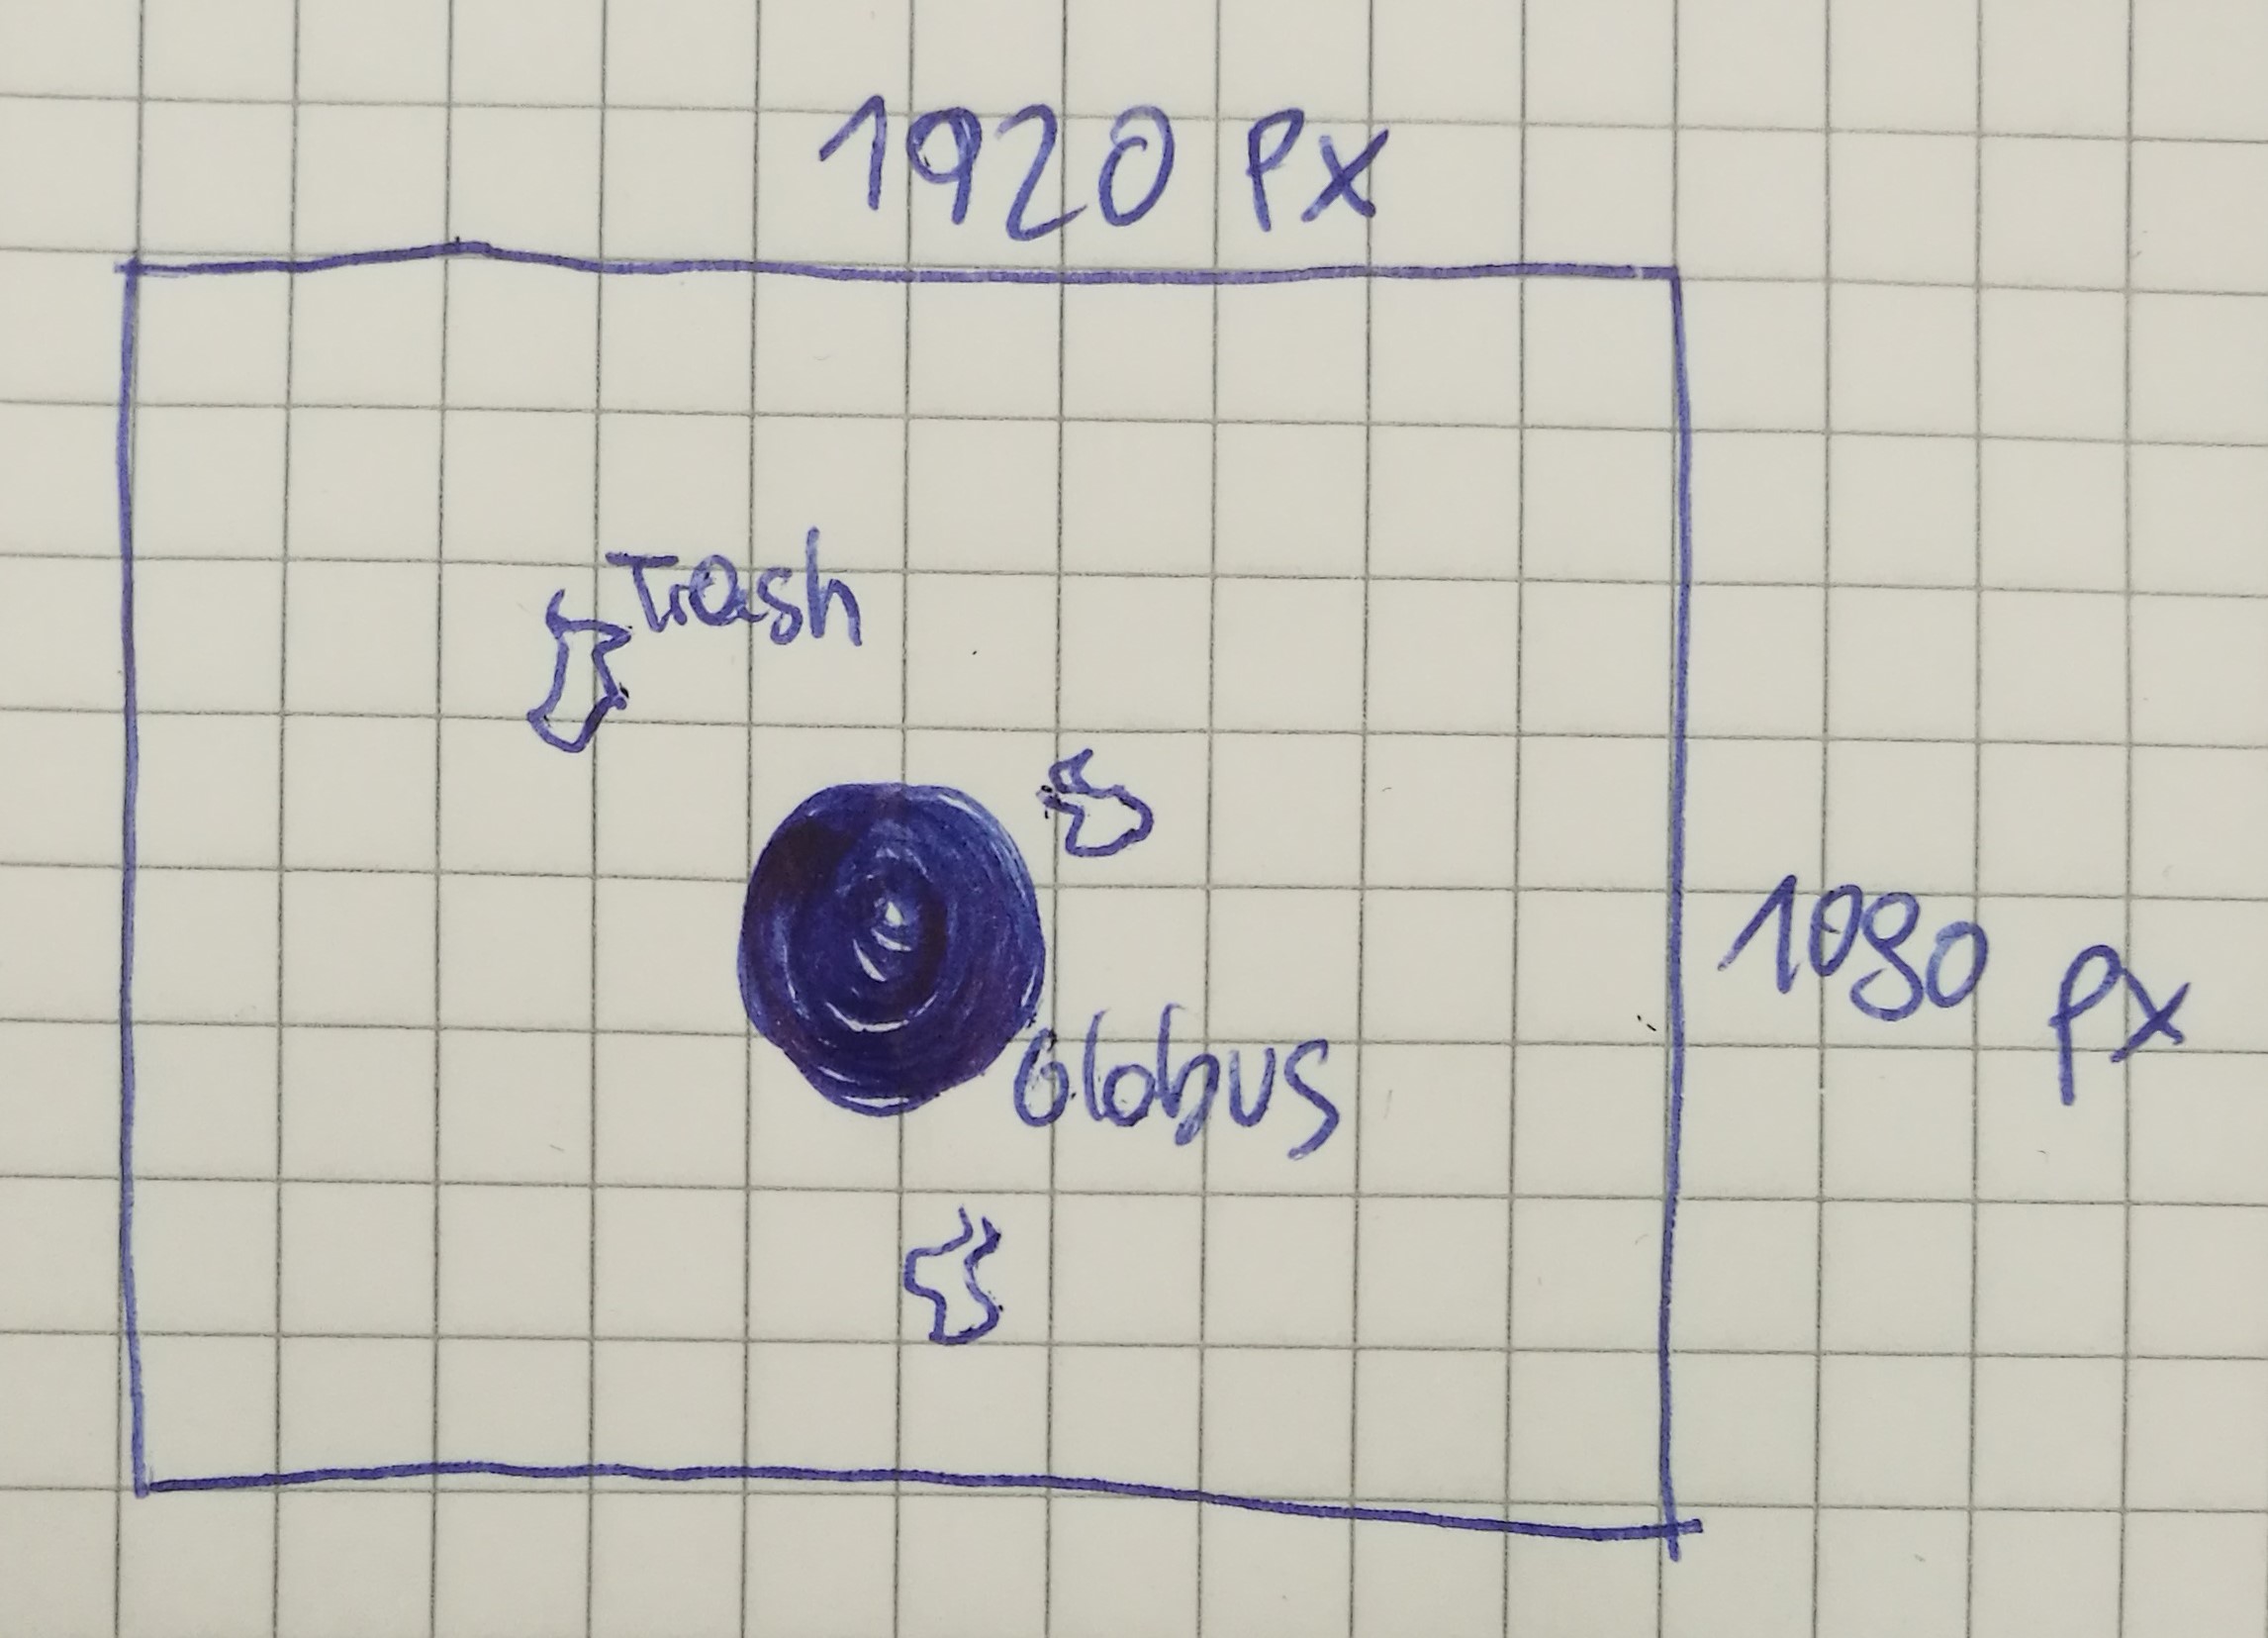 1920 px
Trash
1080 px
Globus